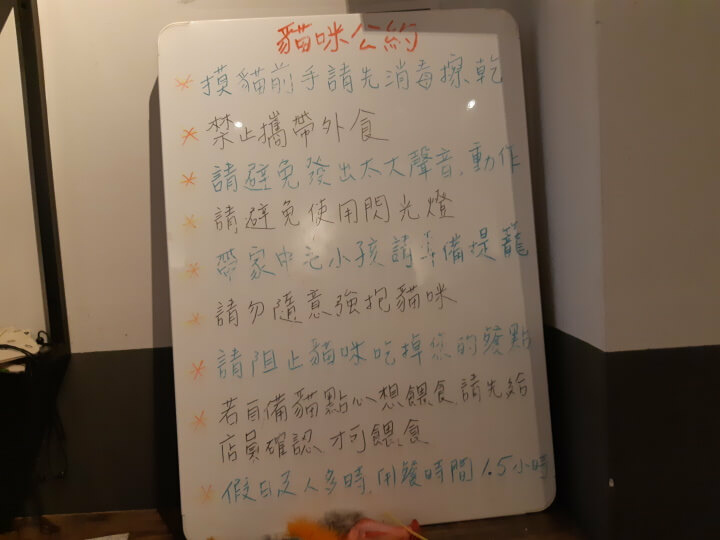 貓咪公約
* 摸貓前手請先消毒擦乾
* 禁止攜帶外食
* 請避免發出太大聲音、動作
* 請避免使用閃光燈
* 帶家中毛小孩請準備提籠
* 請勿隨意強抱貓咪
* 請阻止貓咪吃掉您的餐點
* 若自備貓點心想餵食請先給
店員確認才可餵食
* 假日及人多時用餐時間1.5小時